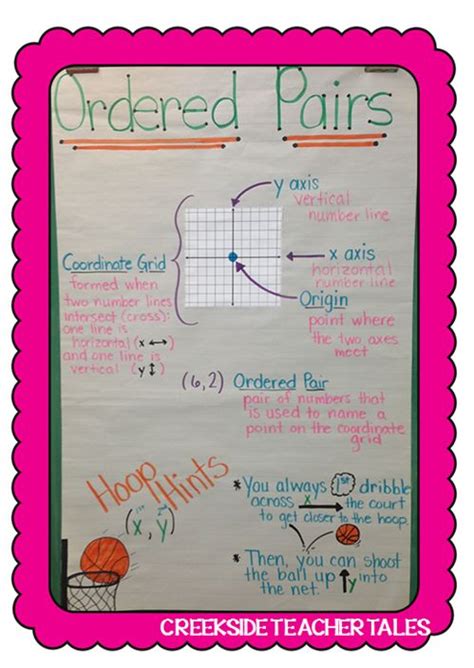 Ordered Pairs
y axis
vertical
number line
x axis
horizontal
number line
Origin
point where
the two axes
meet
Coordinate Grid
formed when
two number lines
intersect (cross):
one line is
horizontal (x ↔)
and one line is
vertical (y ↕)
(6,2) Ordered Pair
pair of numbers that
is used to name a
point on the coordinate
grid
Hoop Hints
1st 2nd
(x, y)
* You always 1st dribble
across x → the court
to get closer to the hoop.
* Then, you can shoot
the ball up ↑ y into
the net.
CREEKSIDE TEACHER TALES